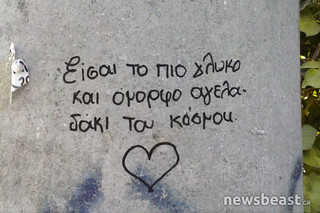 Είσαι το πιο γλυκο
και όμορφο αγελα-
δάκι του κόσμου.
newsbeast.gr